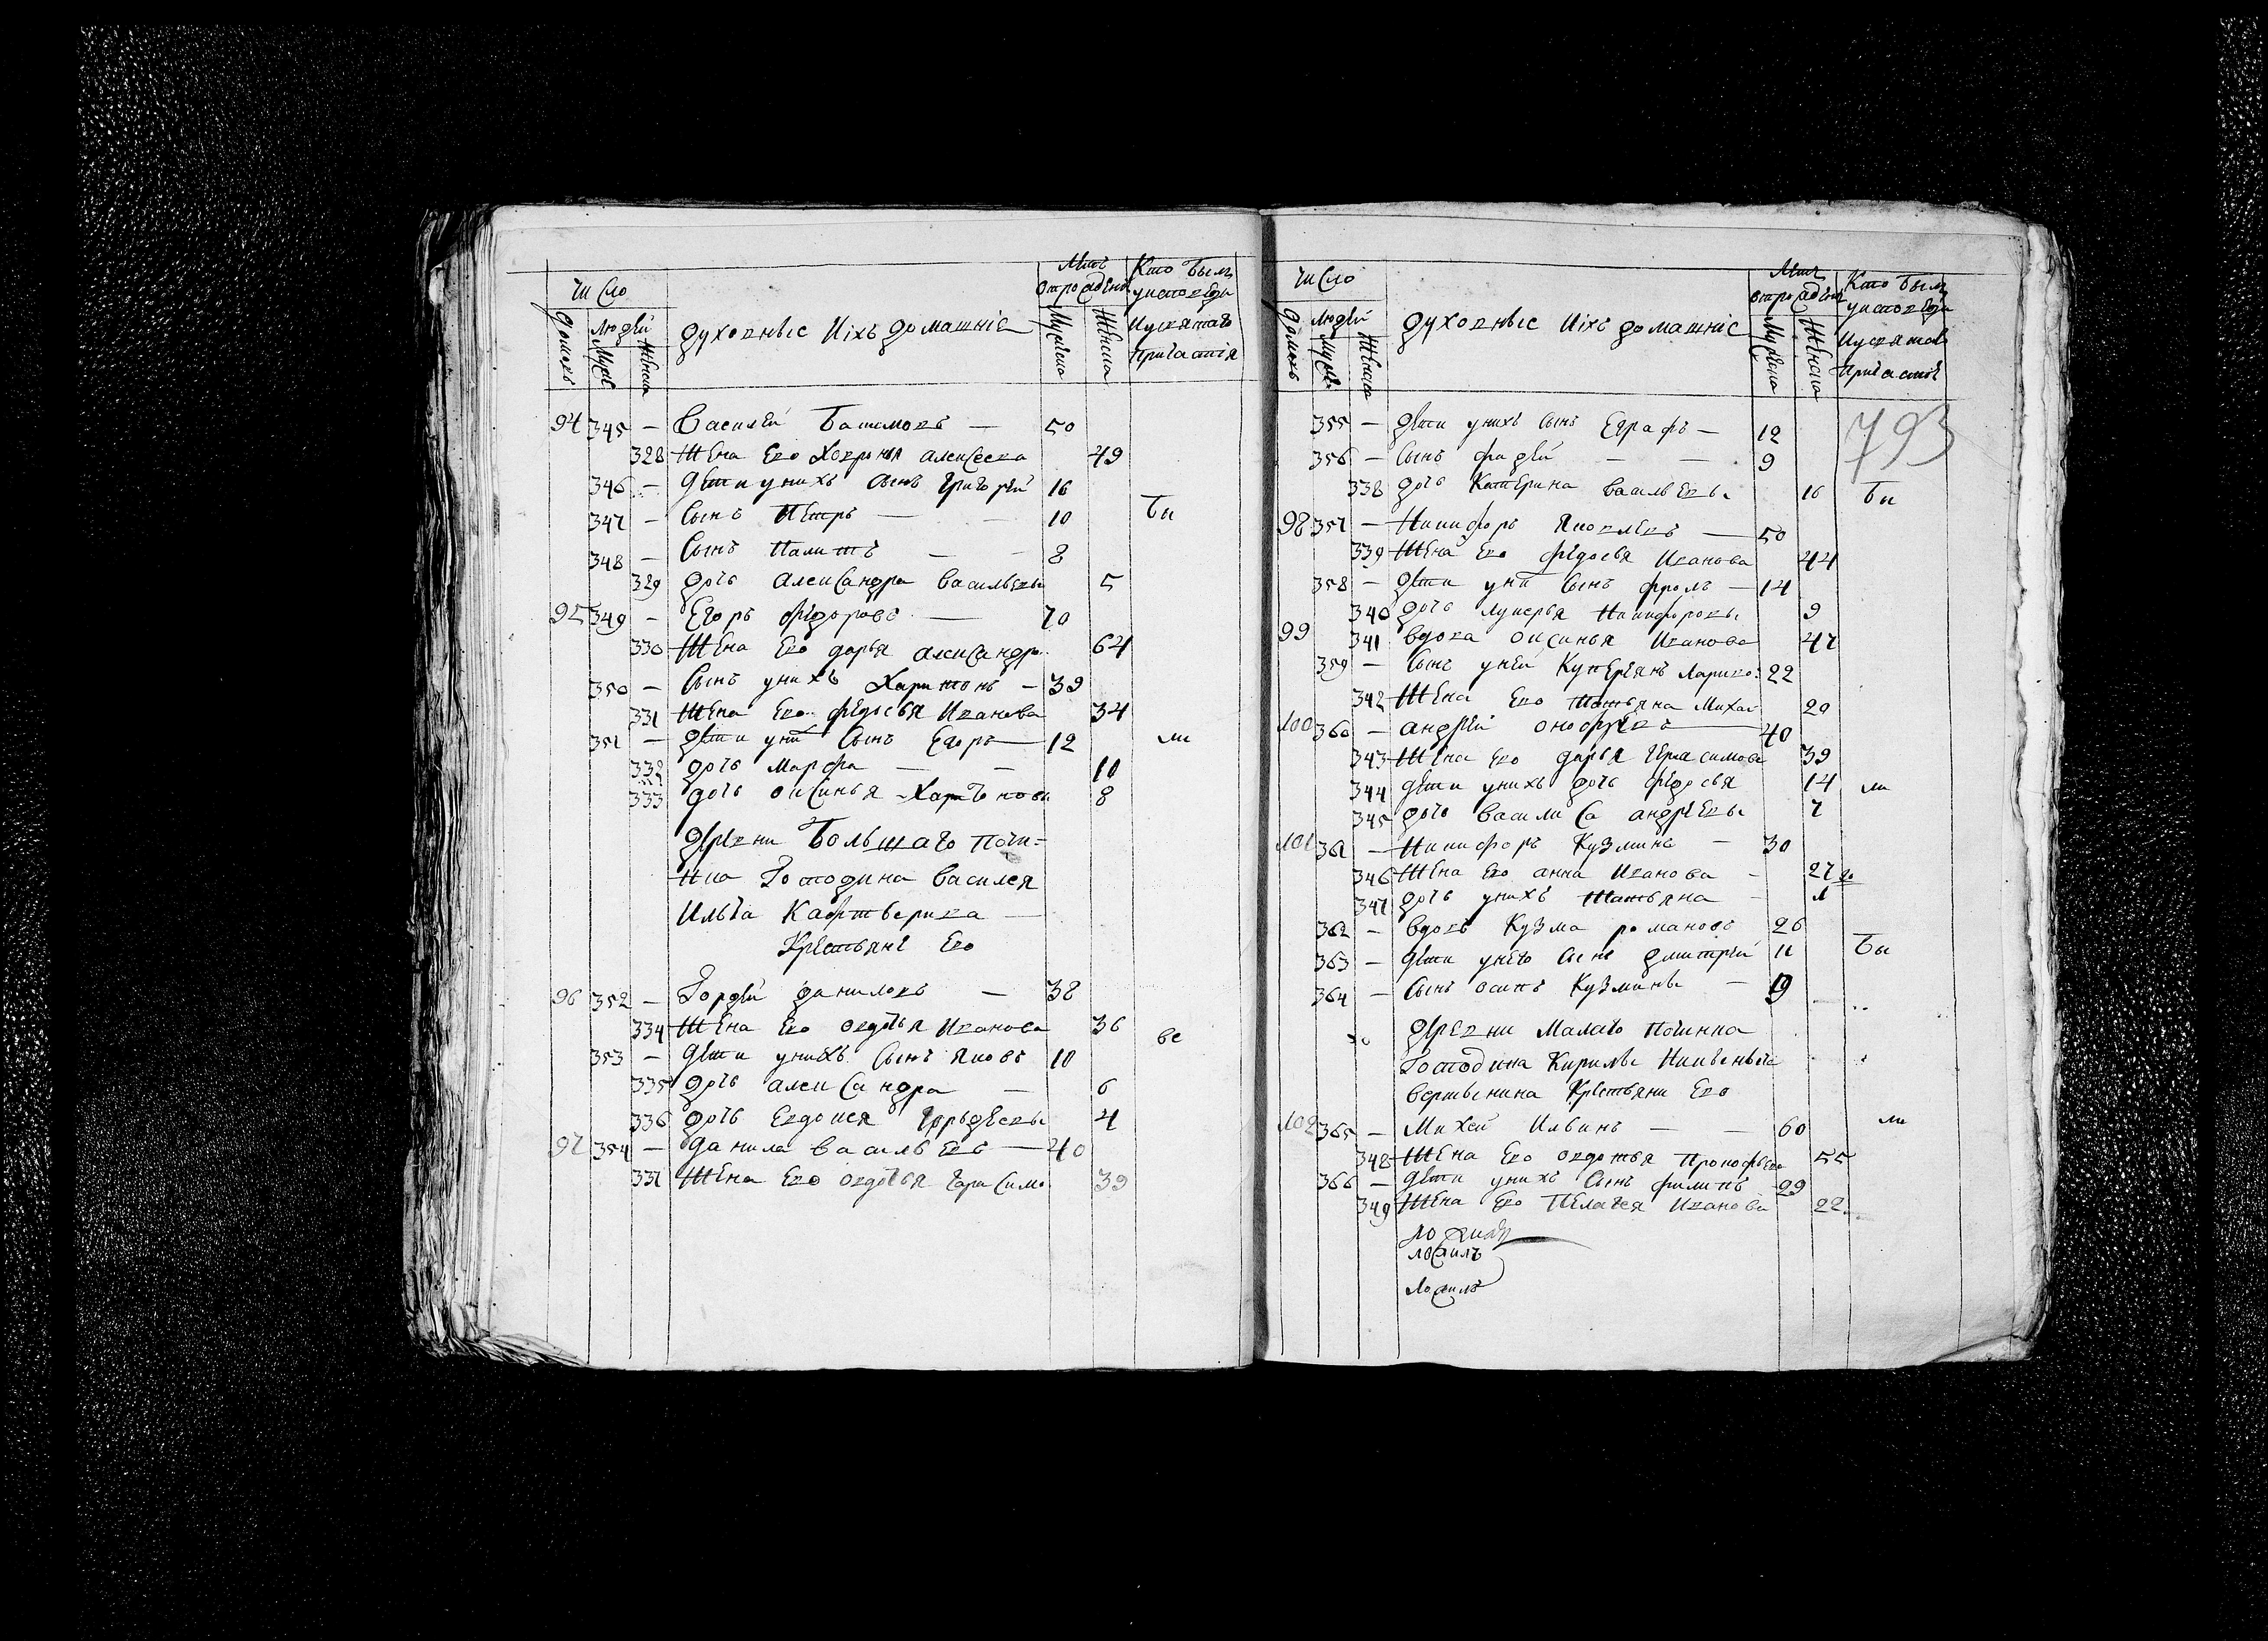 Число
Лѣтъ
отрождения
Кто былъ
уисповеди
домовъ
людей
Муже
Женска
духовныс иіхъ домашніе
Мужеска
Женска
Иусвятаго
Причастія
94 345 — Василей — 50
328 Жена Его Ховронья алексеева 49
346 — Дети унихъ сынъ Григорей 16
347 — Сынъ Петръ — 10 бы
348 — Сынъ — 8
329 дочь александра васильевы 5
95 349 — Егоръ федоровъ — 70
330 Жена Его дарья александро 64
350 — Сынъ унихъ Харитонъ — 39
331 Жена Его федосья Иванова 34
351 — Дети уних Сынъ Егоръ — 12 ли
332 дочь марфа — 10
333 дочь оксинья Харитонова 8
Деревни Большаго Почи-
нка Господина василея
Ильича
Крестьяне Его
96 352 — Гордей даниловъ — 38
334 Жена Его овдотья Иванова 36 вс
353 — Дети унихъ Сынъ яковъ 10
335 дочь александра — 6
336 дочь Евдокея Гордеевы 4
97 354 — данила васильевъ — 40
337 Жена Его овдотья Гарасимо 39
Число
Лѣтъ
отрождения
Кто былъ
уисповеди
домовъ
людей
Муже
Женска
духовныс иіхъ домашніс
Мужеска
Женска
Иусвятаго
Причастія
355 — Дети унихъ сынъ Евграфъ — 12 793
356 — Сынъ фадей — 9
338 дочь Катерина васильевы 16 бы
98 357 — Никифоръ яковлевъ — 50
339 Жена Его федосья Иванова 44
358 — Дети уних Сынъ фролъ — 14
340 дочь лукерья Никифоровы 9
99 341 вдова оксинья Иванова 47
359 — Сынъ уней Куприянъ Ларио: 22
342 Жена Его Татьяна Михаи 20
100 360 — андрей онофреевъ 40
343 Жена Его дарья Герасимова 39
344 Дети унихъ дочь федосья 14 ли
345 дочь василиса андреевы 7
101 361 — Никифоръ Кузминъ — 30
346 Жена Его анна Иванова — 27
347 дочь унихъ Татьяна — 1
362 — вдовъ Кузма романовъ 26
363 — Дети унего Сынъ дмитрей 11 бы
364 — Сынъ осипъ Кузмины — 9
Деревни Малаго Починка
Господина Кирилы
Крестьяни Его
102 365 — Михей Ильинъ — 60 ли
348 Жена Его овдотья Прокофьева 55
366 — Дети унихъ Сынъ филипъ 29
349 Жена Его Пелагея Иванова 22